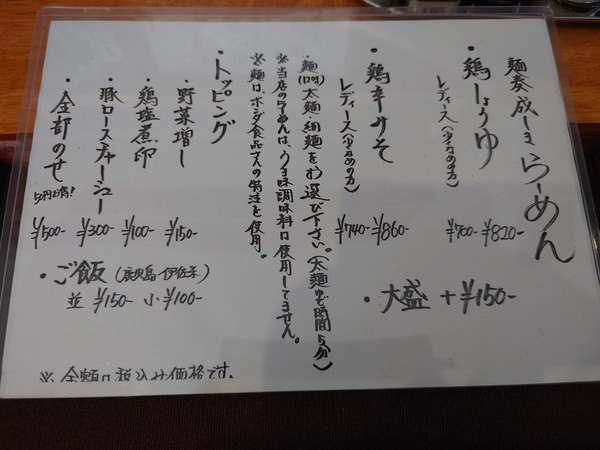 麺奏 成しま らーめん
・鶏しょうゆ ¥820-
レディース(少なめの方) ¥700-
・鶏辛みそ ¥860-
レディース(少なめの方) ¥740-
・大盛 +¥150-
・麺は太麺・細麺をお選び下さい。(太麺ゆで時間5分)
※当店のらーめんは、うま味調味料は使用してません。
※麺は、ホンダ食品さんの特注を使用。
・トッピング
・野菜増し ¥150-
・鶏塩煮卵 ¥100-
・豚ロースチャーシュー ¥300-
・全部のせ 50円お得! ¥500-
・ご飯(鹿児島 伊佐米)
並 ¥150- 小 ¥100-
※金額は税込み価格です。